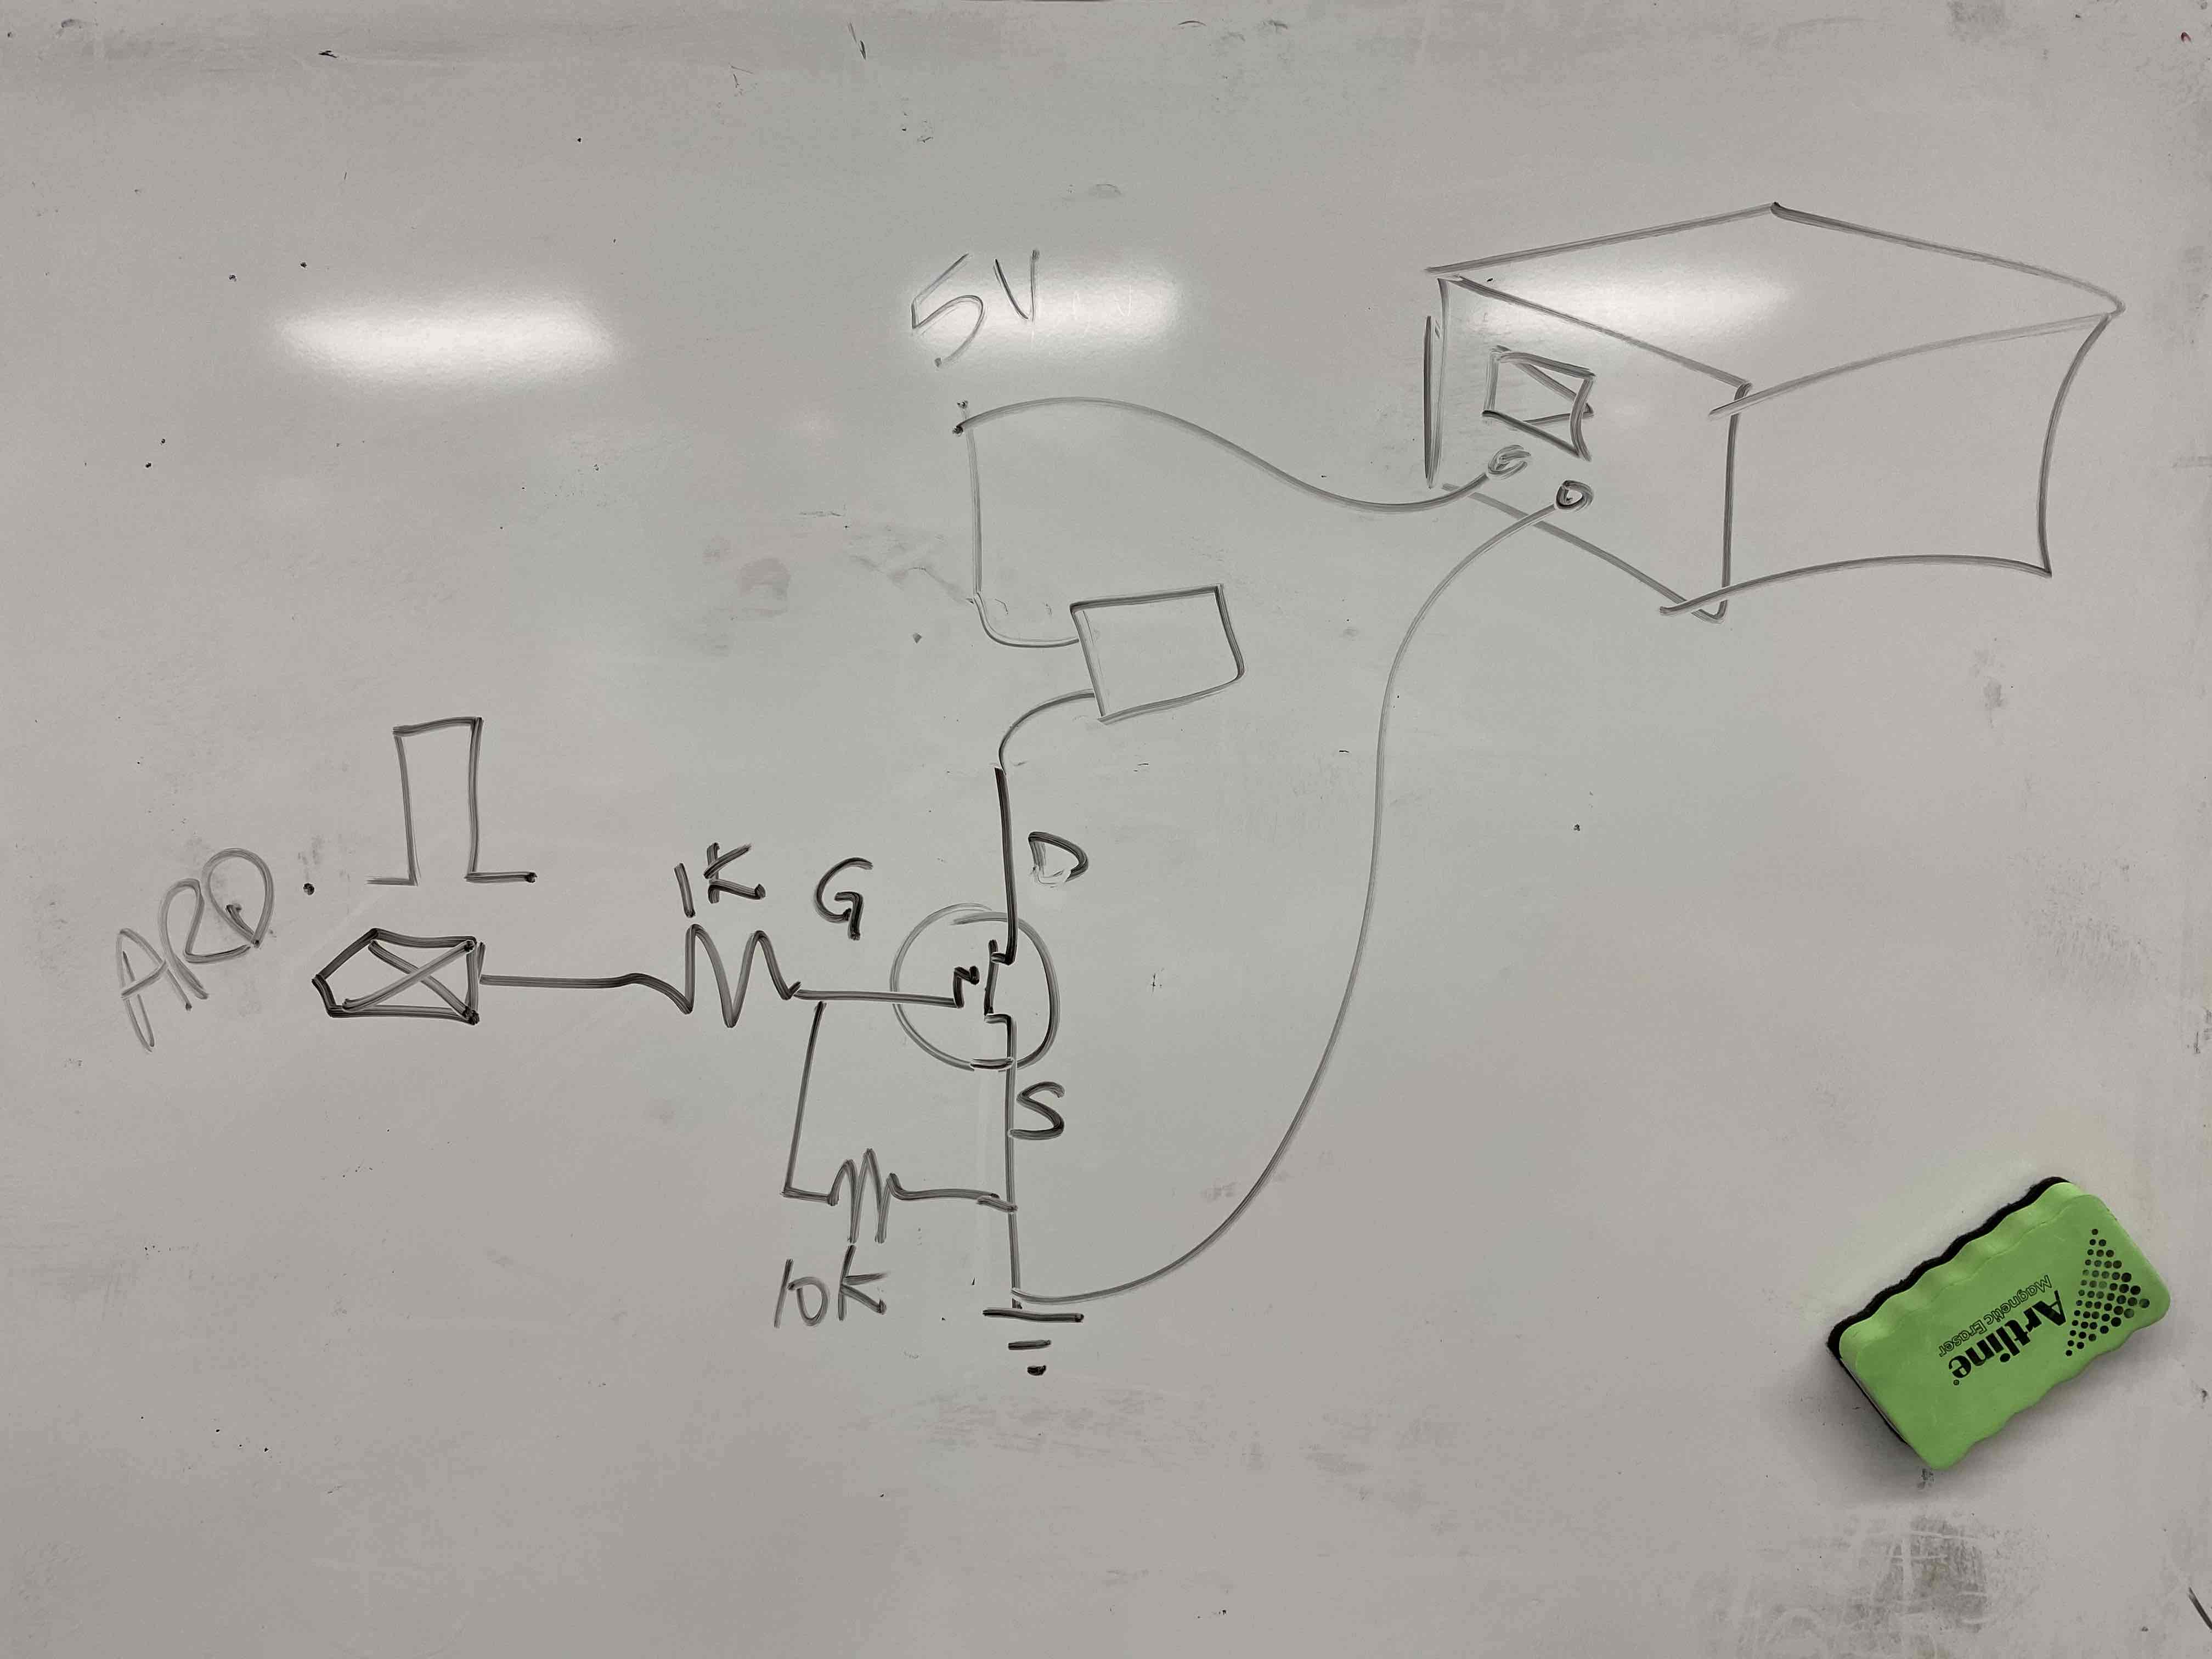 5V
ARD.
1K
G
D
S
10K
Artline
Magnetic Eraser